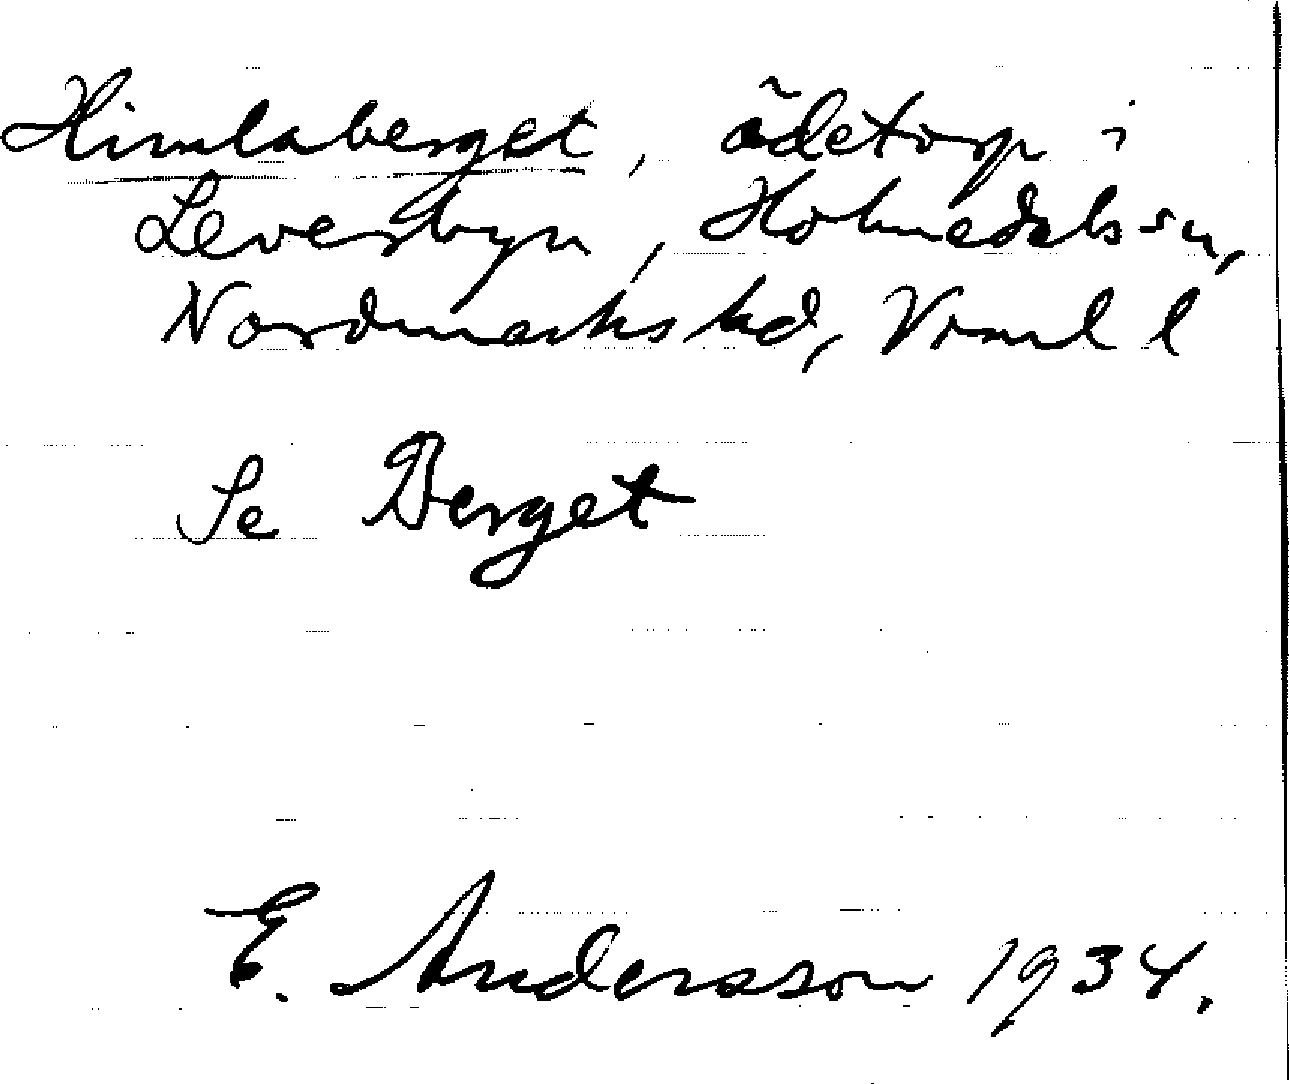 Himlaberget, ödetorp i
Leverbyn, Holmedals sn,
Nordmarks hd, Vrml l
Se Berget
E. Andersson 1934.